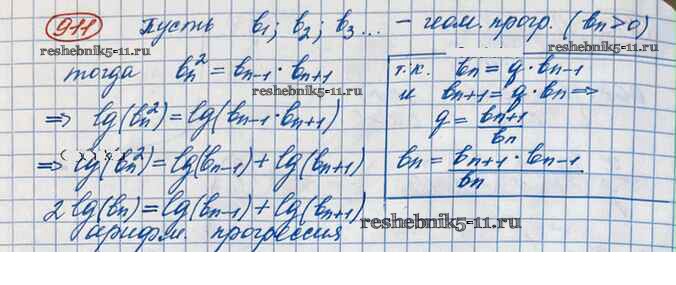 911 Пусть b₁; b₂; b₃... – геом. прогр. (bₙ>0)
reshebnik5-11.ru
reshebnik5-11.ru
тогда bₙ² = bₙ₋₁ · bₙ₊₁
reshebnik5-11.ru
=> lg(bₙ²) = lg(bₙ₋₁ · bₙ₊₁)
=> lg(bₙ²) = lg(bₙ₋₁) + lg(bₙ₊₁)
2 lg(bₙ) = lg(bₙ₋₁) + lg(bₙ₊₁)
арифм. прогрессия
т.к. bₙ = q · bₙ₋₁
и bₙ₊₁ = q · bₙ =>
q = bₙ₊₁ / bₙ
bₙ = bₙ₊₁ · bₙ₋₁ / bₙ
reshebnik5-11.ru
reshebnik5-11.ru